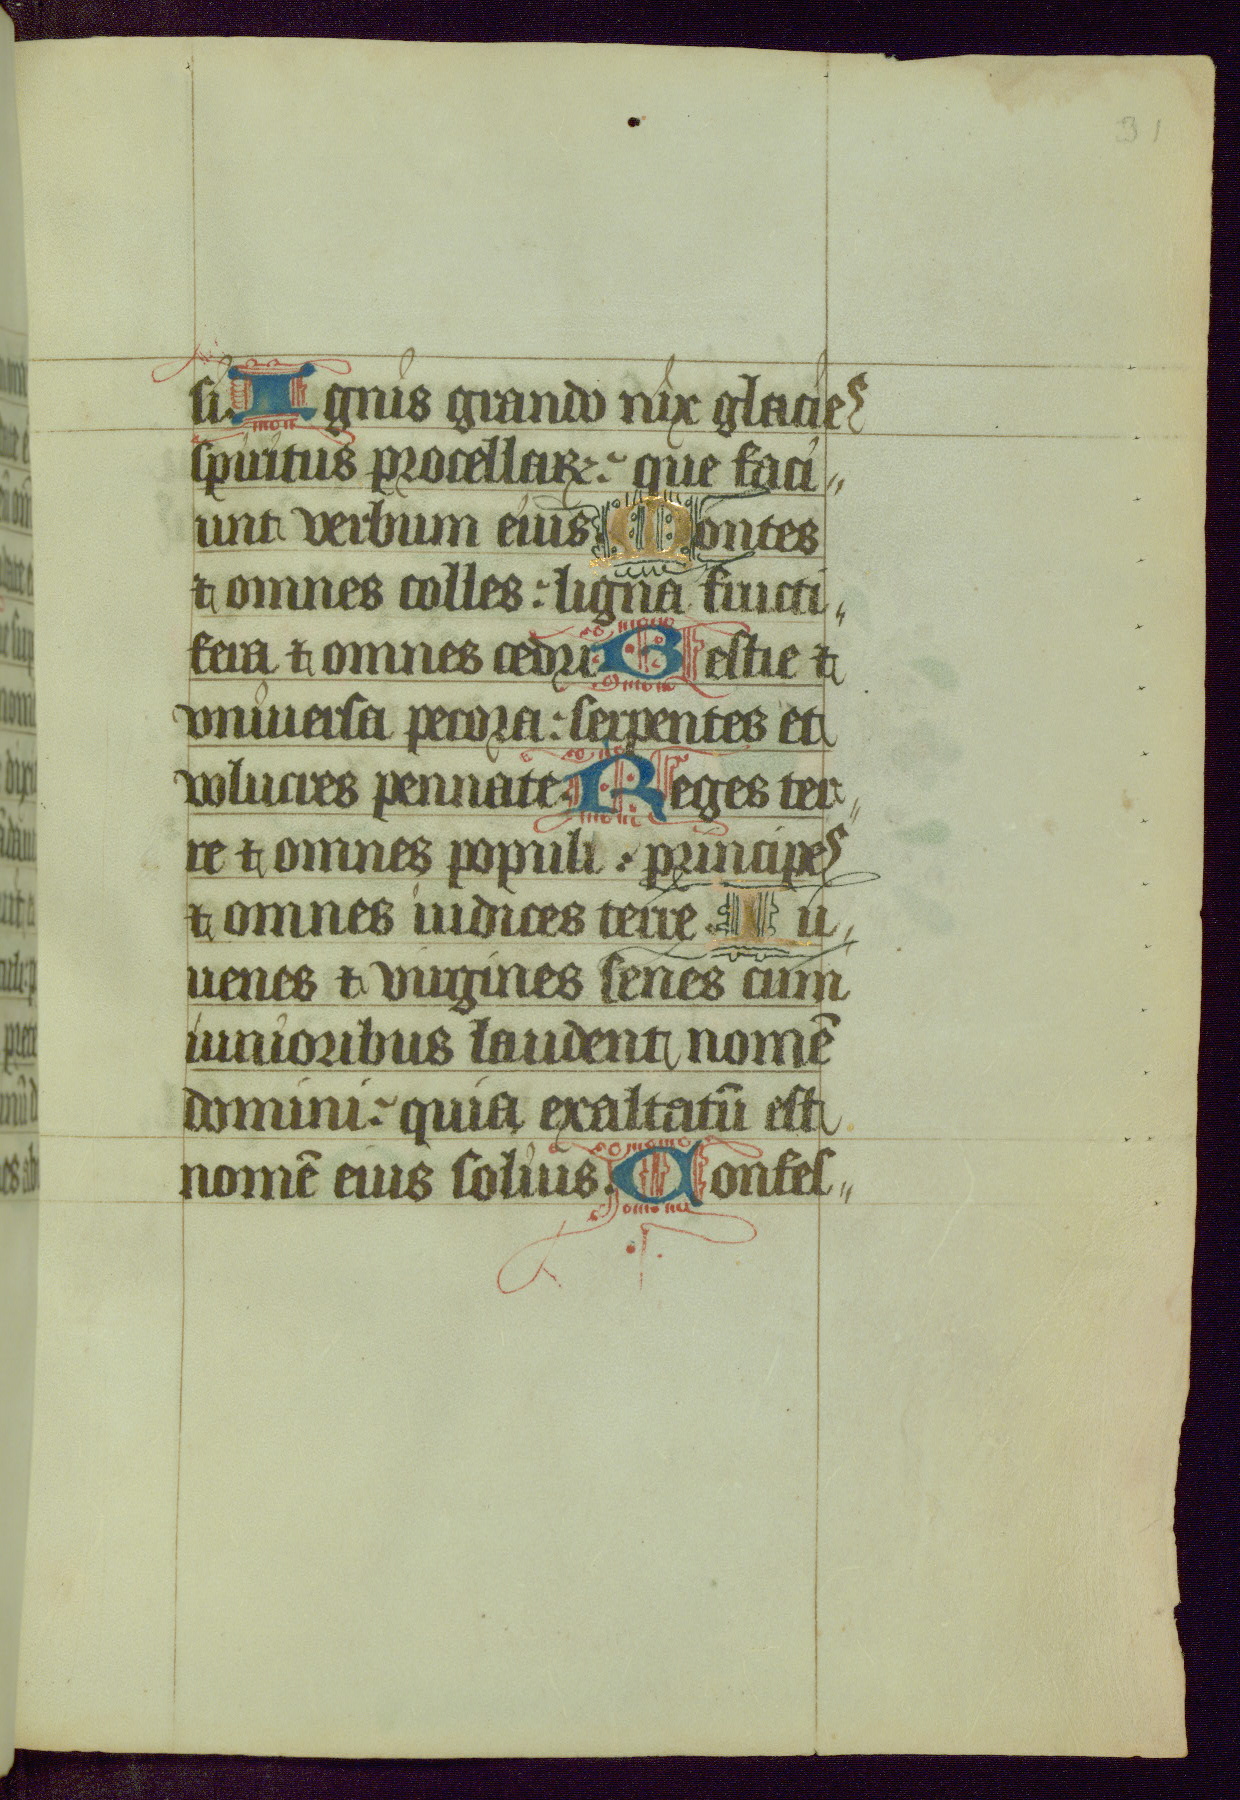 31
si. Ignis grando nix glacies
spiritus procellaꝝ: que faci〃
unt verbum eius. Montes
⁊ omnes colles: ligna fructi〃
fera ⁊ omnes cedri. Bestie ⁊
vniuersa pecora: serpentes et
volucres pennate. Reges ter〃
re ⁊ omnes populi: principes
⁊ omnes iudices terre. Iu〃
uenes ⁊ virgines senes cum
iunioribus laudent nomē
domini: quia exaltatū est
nomē eius solius. Confes〃